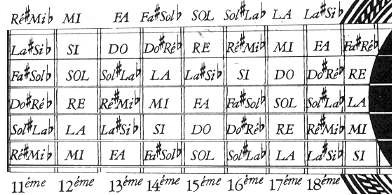 Ré♯Mi♭ MI FA Fa♯Sol♭ SOL Sol♯La♭ LA La♯Si♭
La♯Si♭ SI DO Do♯Ré♭ RE Ré♯Mi♭ MI FA Fa♯Ré♭
Fa♯Sol♭ SOL Sol♯La♭ LA La♯Si♭ SI DO Do♯Ré♭ RE
Do♯Ré♭ RE Ré♯Mi♭ MI FA Fa♯Sol♭ SOL Sol♯La♭ LA
Sol♯La♭ LA La♯Si♭ SI DO Do♯Ré♭ RE Ré♯Mi♭ MI
Ré♯Mi♭ MI FA Fa♯Sol♭ SOL Sol♯La♭ LA La♯Si♭ SI
11ème 12ème 13ème 14ème 15ème 16ème 17ème 18ème